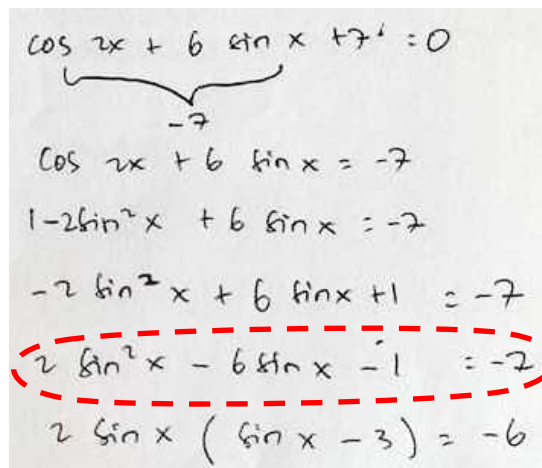 cos 2x + 6 sin x + 7 = 0
-7
cos 2x + 6 sin x = -7
1-2sin²x + 6 sin x = -7
-2 sin²x + 6 sinx +1 = -7
2 sin²x - 6 sin x - 1 = -7
2 sin x ( sin x - 3) = -6